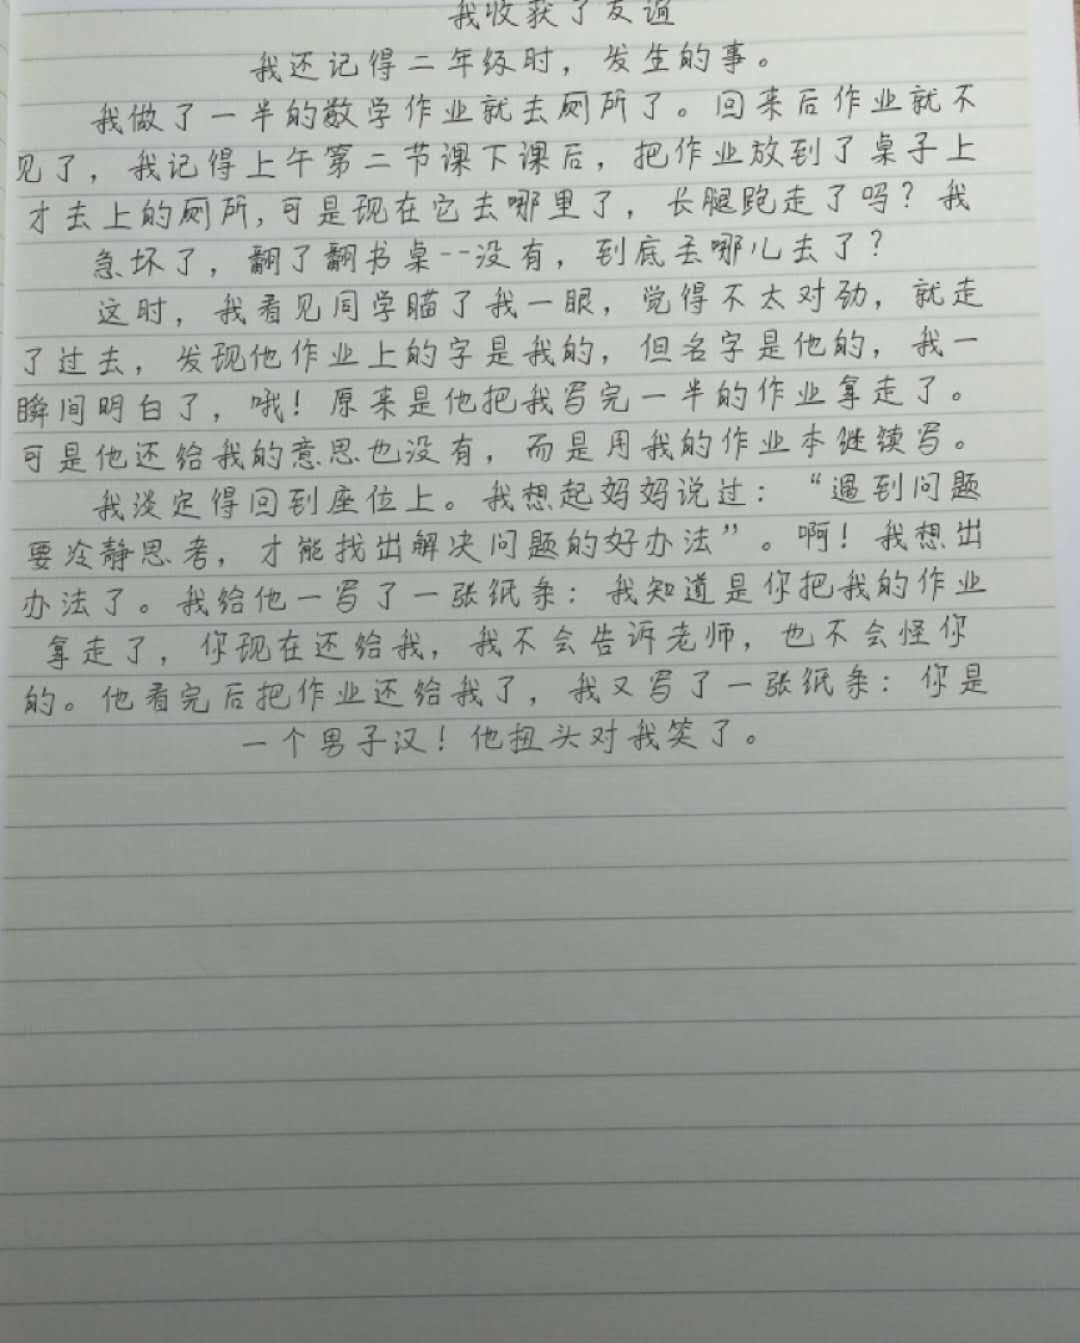 我收获了友谊
我还记得二年级时，发生的事。
我做了一半的数学作业就去厕所了。回来后作业就不
见了，我记得上午第二节课下课后，把作业放到了桌子上
才去上的厕所，可是现在它去哪里了，长腿跑走了吗？我
急坏了，翻了翻书桌--没有，到底丢哪儿去了？
这时，我看见同学瞄了我一眼，觉得不太对劲，就走
了过去，发现他作业上的字是我的，但名字是他的，我一
瞬间明白了，哦！原来是他把我写完一半的作业拿走了。
可是他还给我的意思也没有，而是用我的作业本继续写。
我淡定得回到座位上。我想起妈妈说过：“遇到问题
要冷静思考，才能找出解决问题的好办法”。啊！我想出
办法了。我给他一写了一张纸条：我知道是你把我的作业
拿走了，你现在还给我，我不会告诉老师，也不会怪你
的。他看完后把作业还给我了，我又写了一张纸条：你是
一个男子汉！他扭头对我笑了。